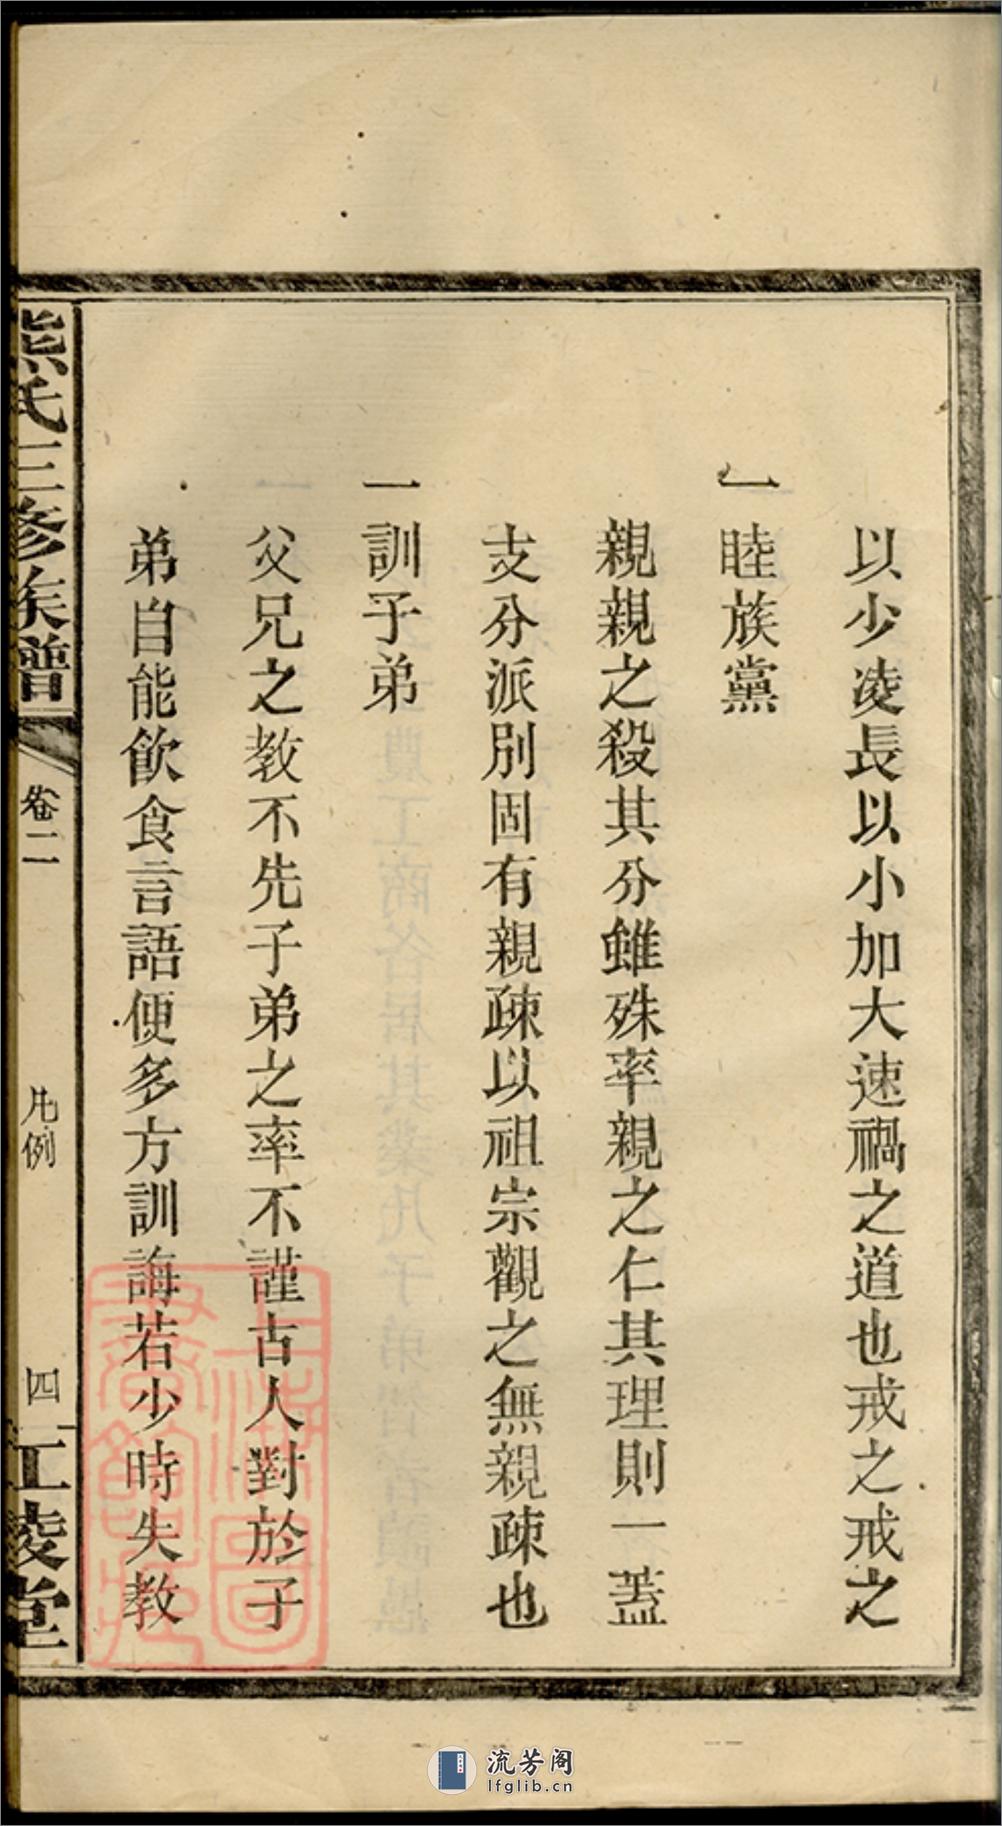 以少凌長以小加大速禍之道也戒之戒之
一睦族黨
親親之殺其分雖殊率親之仁其理則一蓋
支分派別固有親疎以祖宗觀之無親疎也
一訓子弟
父兄之教不先子弟之率不謹古人對於子
弟自能飲食言語便多方訓誨若少時失教
熊氏三修族譜
卷二
凡例
四
江陵堂
上海圖書館藏
流芳阁
lfglib.cn